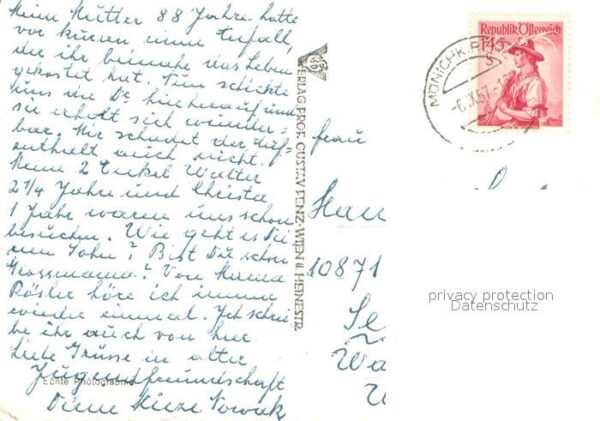 Meine Mutter 88 Jahre hatte
vor kurzem einen Unfall,
der ihr beinahe das Leben
gekostet hat. Nun schickte
uns die Dr. hierherauf und
sie erholt sich wunder-
bar. Mir schadet der Auf-
enthalt auch nicht.
Meine 2 Enkel Walter
2 1/4 Jahre und Christa
1 Jahr waren uns schon
besuchen. Wie geht es Dir
Sohn? Bist Du schon
Grossmama? Von
Rösler höre ich immer
wieder einmal. Ich schrei-
be ihr auch von hier.
Liebe Grüsse in alter
Jugendfreundschaft
Deine Nowak
Echte Photographie
VERLAG PROF. GUSTAV FENZ-WIEN II. HEINESTR.
Republik Österreich
1·45
S
MÖNICHK
-6.X.57
Frau
10871
privacy protection
Datenschutz